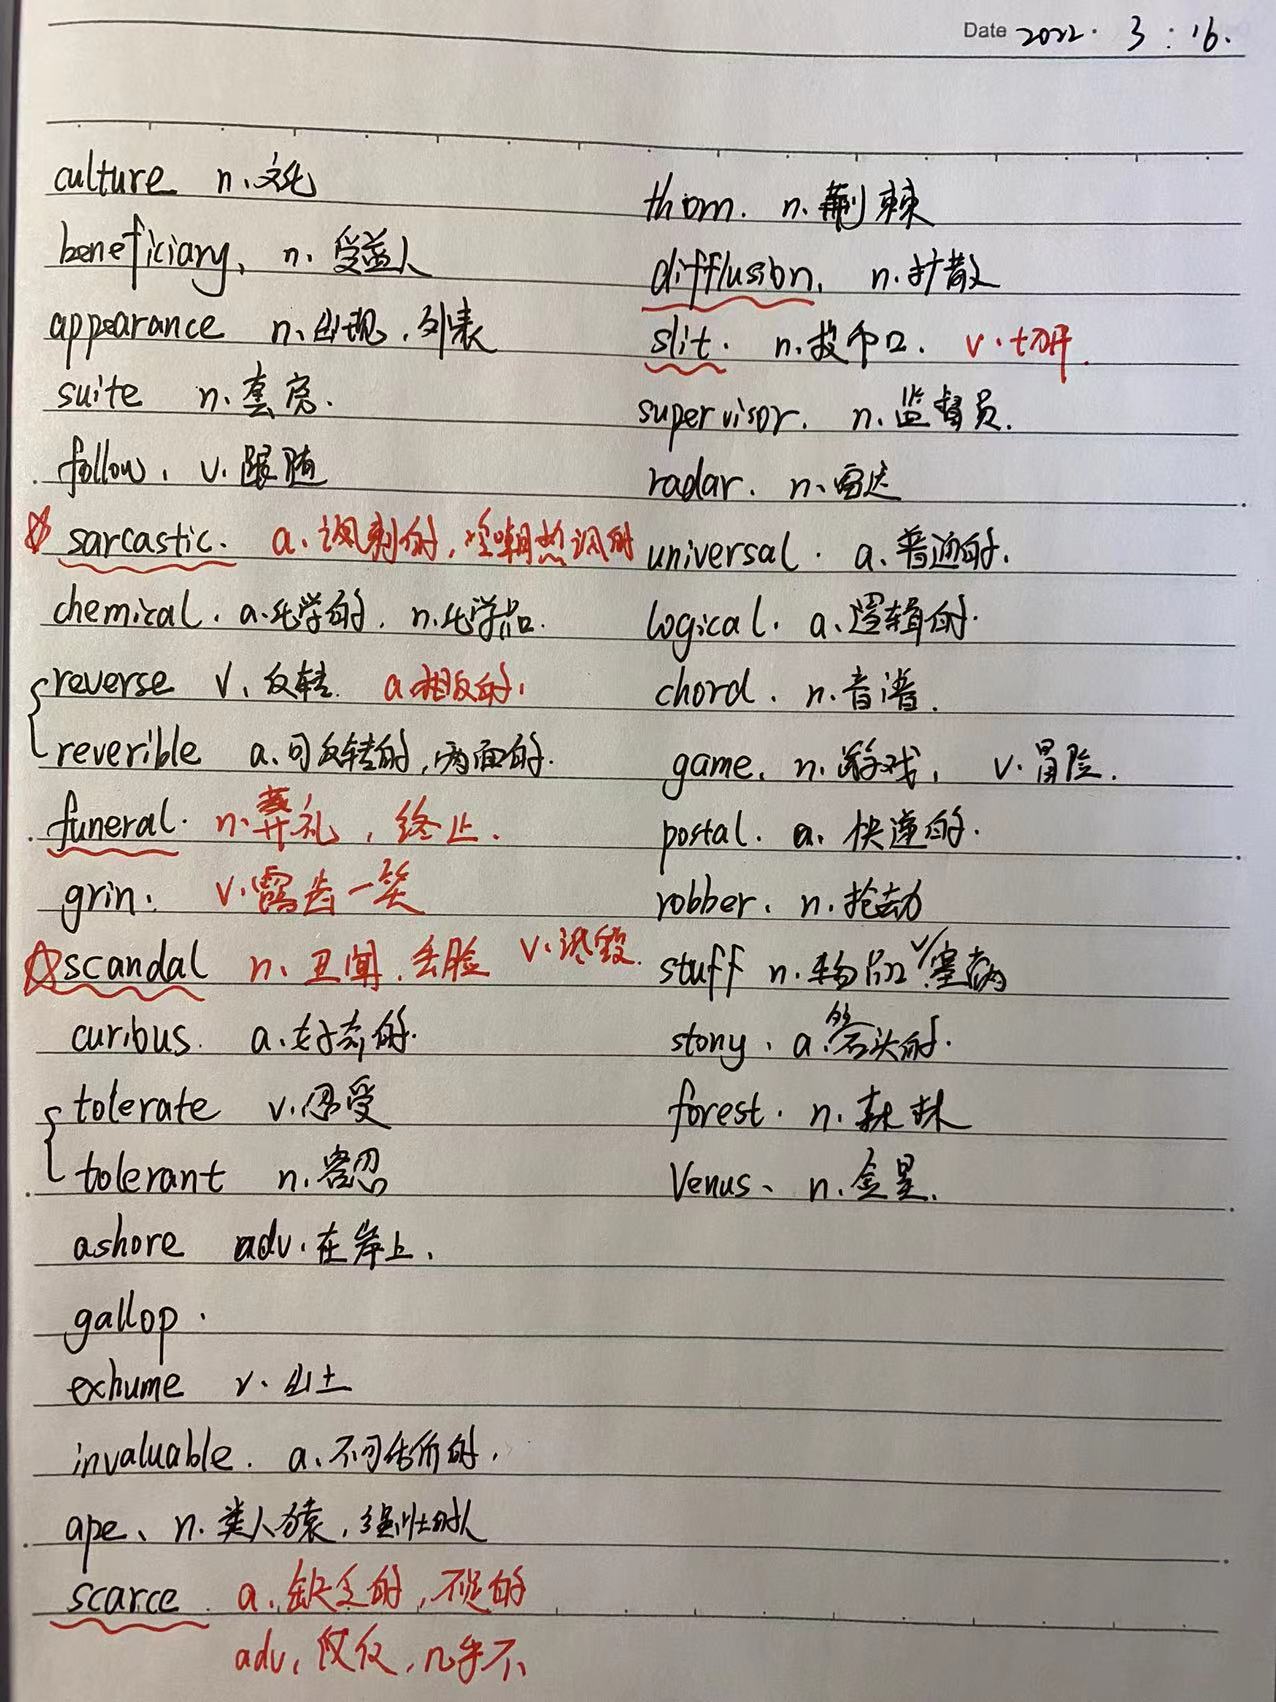 Date 2022. 3. 16.
culture n. 文化
beneficiary, n. 受益人
appearance n. 出现, 列表
suite n. 套房.
follow, v. 跟随
sarcastic. a. 讽刺的, 冷嘲热讽的
chemical. a. 化学的, n. 化学品.
reverse v. 反转. a. 相反的.
reverible a. 可反转的, 两面的.
funeral. n. 葬礼, 终止.
grin. v. 露齿一笑
scandal n. 丑闻, 丢脸 v. 诽毁.
curious. a. 好奇的.
tolerate v. 忍受
tolerant n. 容忍
ashore adv. 在岸上.
gallop.
exhume v. 出土
invaluable. a. 不可估价的.
ape, n. 类人猿, 强壮的人
scarce a. 缺乏的, 不足的
adv. 仅仅, 几乎不
thorn. n. 荆棘
difflusion, n. 扩散
slit. n. 投币口. v. 切开.
supervisor. n. 监督员.
radar. n. 雷达
universal. a. 普遍的.
logical. a. 逻辑的.
chord. n. 音谱.
game, n. 游戏, v. 冒险.
postal. a. 快递的.
robber, n. 抢劫
stuff n. 物品 v. 塞满
stony, a. 多石头的.
forest. n. 森林
Venus, n. 金星.